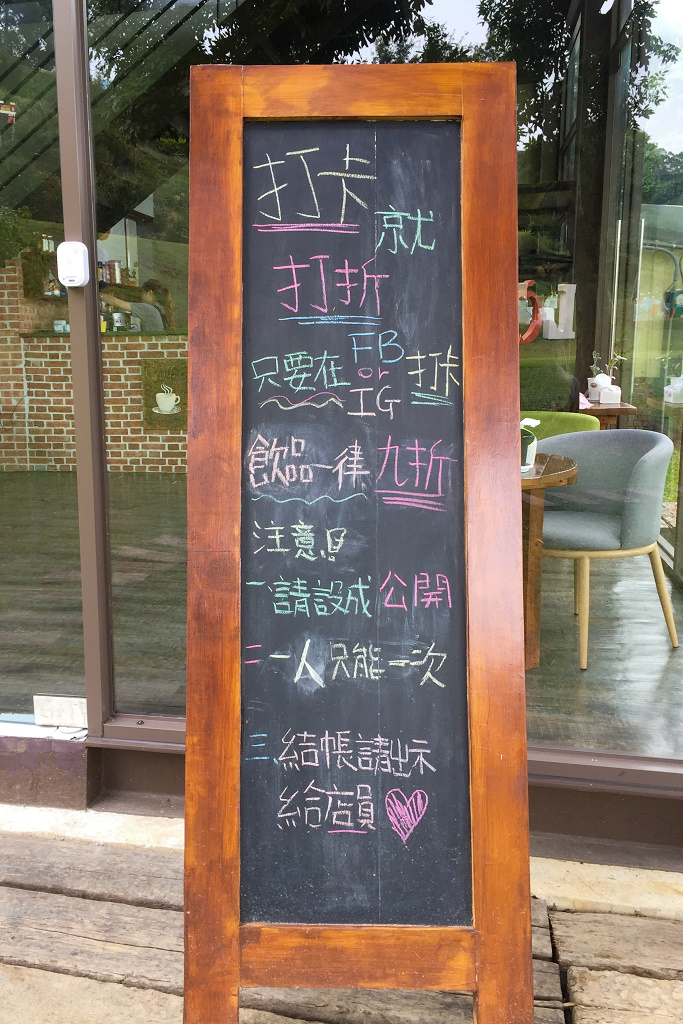 打卡
就
打折
只要在FB or IG打卡
飲品一律九折
注意!!
一、請設成公開
二、一人只能一次
三、結帳請出示
給店員